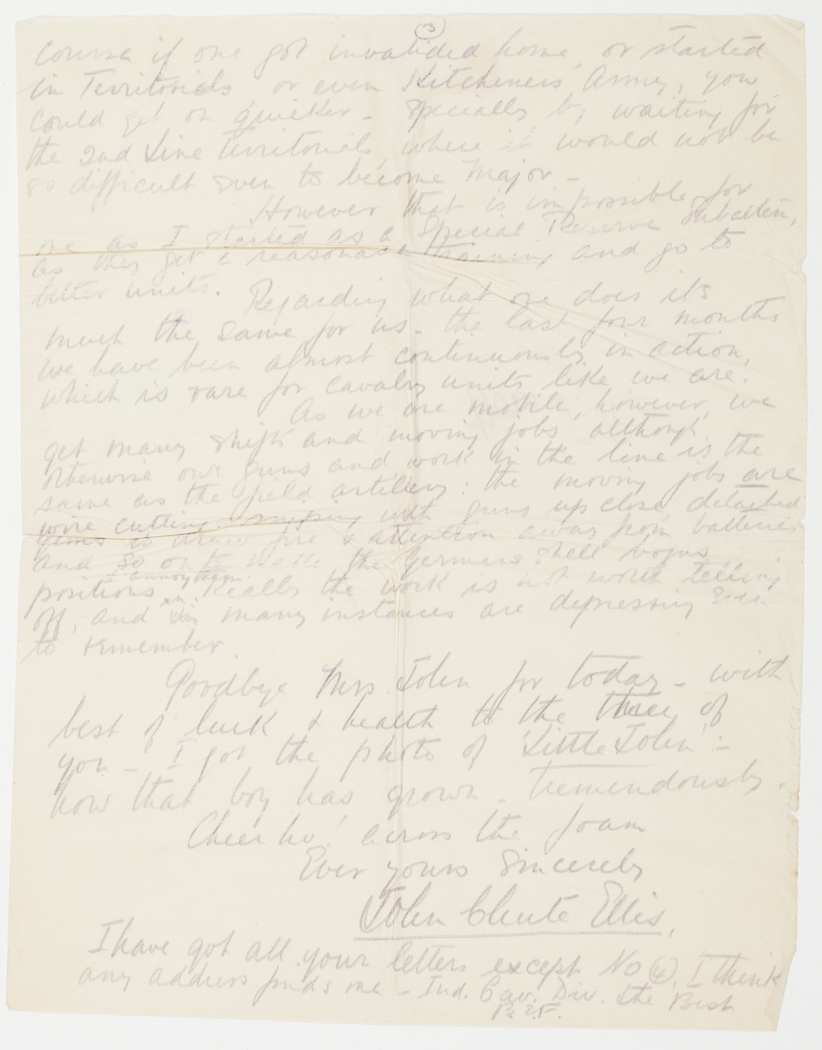 (3)
course if one got invalided home, or started
in Territorials or even Kitcheners' Army, you
could get on quicker - specially by waiting for
the 2nd Line Territorials where it would not be
so difficult even to become Major -
However that is impossible for
one as I started as a Special Reserve Subaltern,
as they get a reasonable training and go to
better units.
Regarding what one does its
much the same for us - the last four months
we have been almost continuously in action,
which is rare for cavalry units like we are.
As we are mobile, however, we
get many shifts and moving jobs although
otherwise our guns and work in the line is the
same as the field artillery: the moving jobs are
wire cutting, sniping with guns up close, detached
guns to draw fire & attention away from batteries
and so on to make the Germans shell bogus
& annoy them.
positions. Really the work is not worth telling
off, and in many instances are depressing even
to remember.
Goodbye Mrs John for today - with
best of luck & health to the three of
you - I got the photo of 'Little John' :-
how that boy has grown - tremendously.
Cheer ho! across the foam
Ever yours Sincerely
John Chute Ellis,
I have got all your letters except No (4), I think
any address finds one - Ind. Cav. Div. the Best
B.E.F.